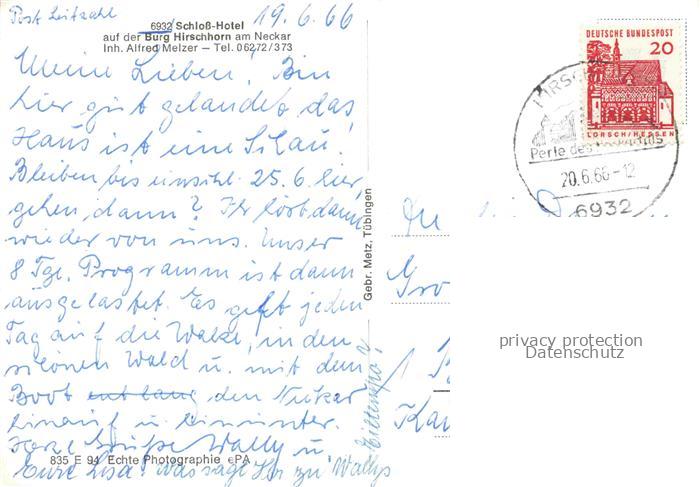 Post Leitzahl
6932 Schloß-Hotel
19.6.66
auf der Burg Hirschhorn am Neckar
Inh. Alfred Melzer – Tel. 06272/373
Meine Lieben! Bin
hier gut gelandet das
Haus ist eine Schau!
Bleiben bis einschl. 25.6. hier,
gehen, dann? Ihr hört dann
wieder von uns. Unser
8 Tge. Programm ist dann
ausgelastet. Es geht jeden
Tag auf die Walze, in den
schönen Wald u. mit dem
Boot entlang den Neckar
hinauf u. hinunter.
Herz. Grüße Wally u.
Eure Lisa! Was sagt Ihr zu Wallys
835 E 94 Echte Photographie ePA
Gebr. Metz, Tübingen
DEUTSCHE BUNDESPOST
20
LORSCH/HESSEN
HIRSCH
Perle des
20.6.66-12
6932
privacy protection
Datenschutz